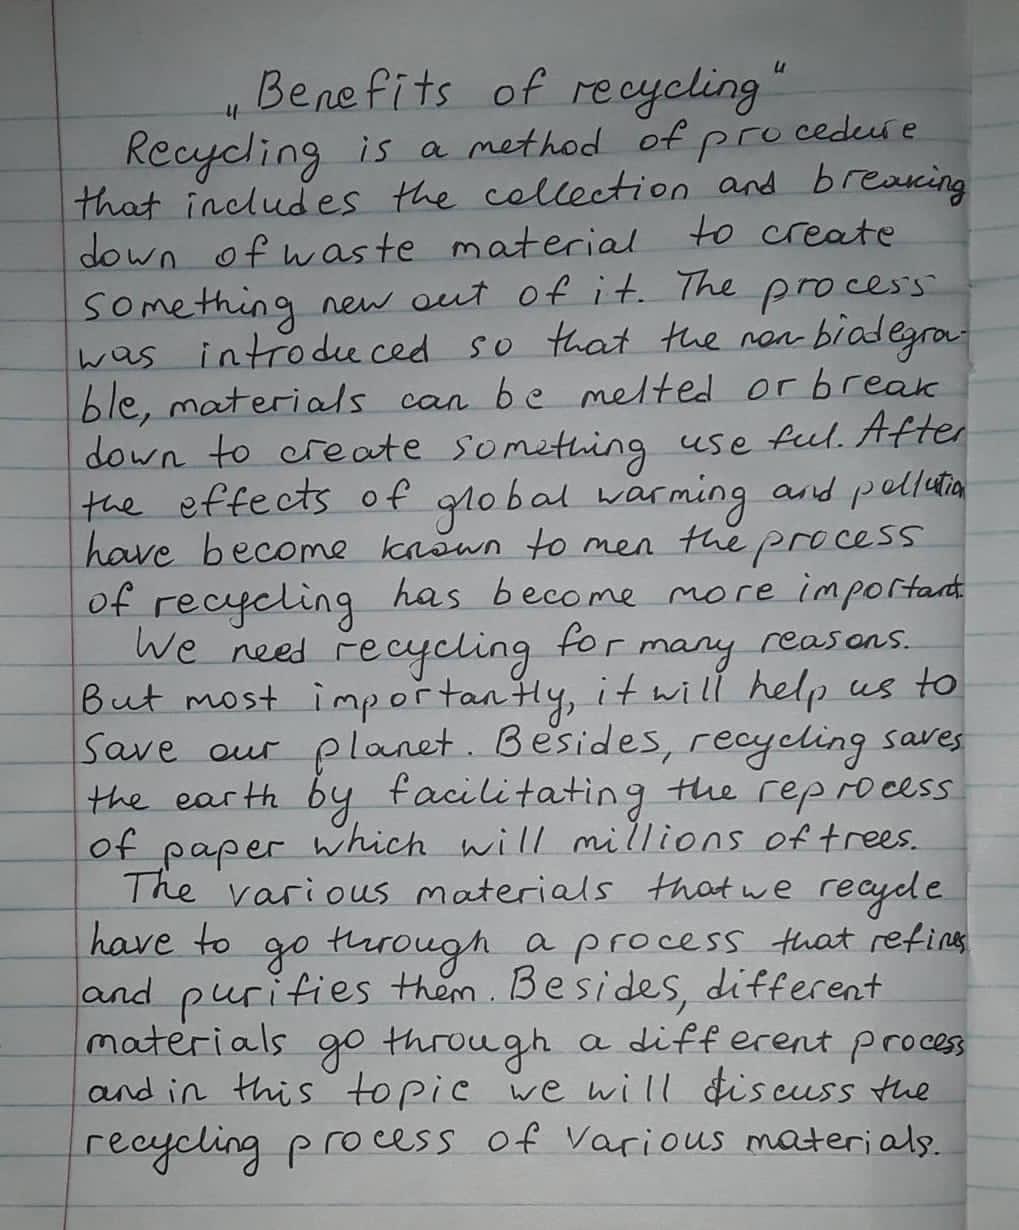 „Benefits of recycling“
Recycling is a method of procedure
that includes the collection and breaking
down of waste material to create
something new out of it. The process
was introduced so that the non-biodegra-
ble, materials can be melted or break
down to create something useful. After
the effects of global warming and pollution
have become known to men the process
of recycling has become more important.
We need recycling for many reasons.
But most importantly, it will help us to
save our planet. Besides, recycling saves
the earth by facilitating the reprocess
of paper which will millions of trees.
The various materials that we recycle
have to go through a process that refines
and purifies them. Besides, different
materials go through a different process
and in this topic we will discuss the
recycling process of various materials.